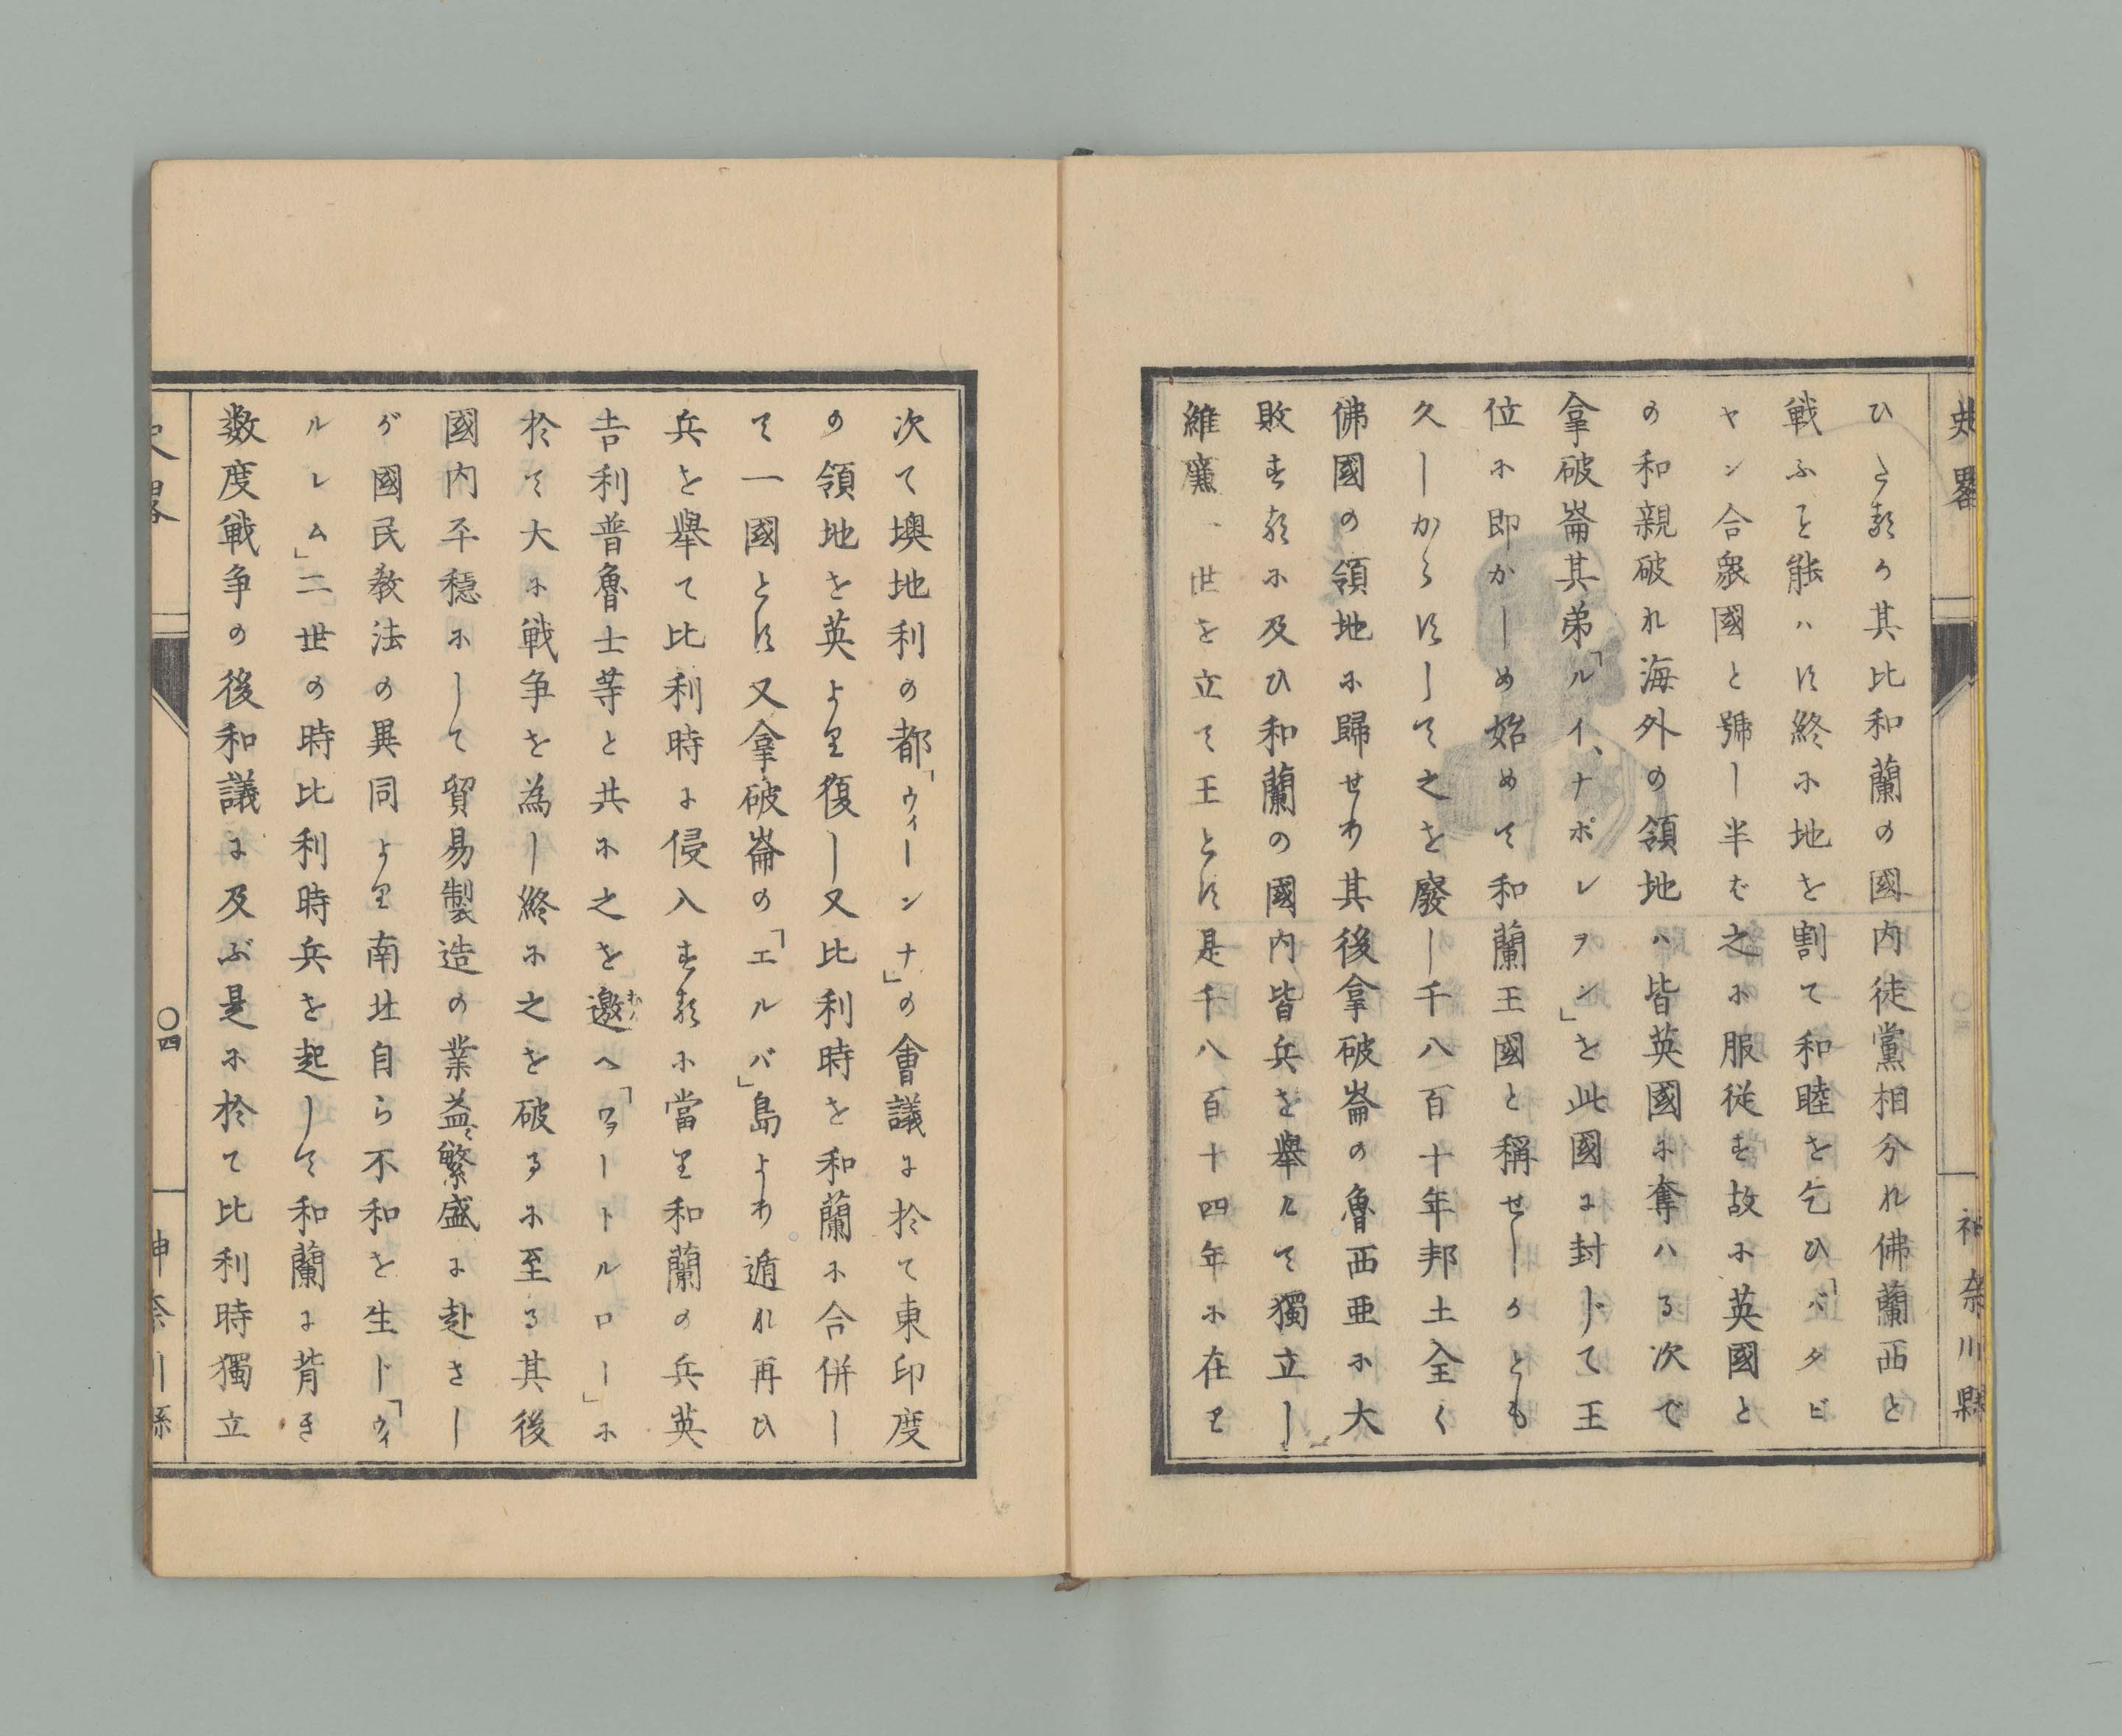 史畧
神奈川縣
ひたるか其比和蘭の國内徒黨相分れ佛蘭西と
戦ふを能ハす終に地を割て和睦を乞ひ「バタビ
ヤン合衆國と號し半ば之に服従す故に英國と
の和親破れ海外の領地ハ皆英國に奪ハる次で
拿破崙其弟「ルイ、ナポレヲン」を此國に封じて王
位に即かしめ始めて和蘭王國と稱せしかとも
久しからすして之を廢し千八百十年邦土全く
佛國の領地に歸せり其後拿破崙の魯西亜に大
敗するに及ひ和蘭の國内皆兵を舉けて獨立し
維廉一世を立て王とす是千八百十四年に在り
次て墺地利の都「ウィーンナ」の會議に於て東印度
の領地を英より復し又比利時を和蘭に合併し
て一國とす又拿破崙の「エルバ」島より遁れ再ひ
兵を舉て比利時に侵入するに當り和蘭の兵英
吉利普魯士等と共に之を邀へ「ワヲートルロー」に
於て大に戦争を為し終に之を破るに至る其後
國内平穏にして貿易製造の業益〻繁盛に赴きし
が國民教法の異同より南北自ら不和を生じ「ウィ
ルレム」二世の時比利時兵を起して和蘭に背き
数度戦争の後和議に及ぶ是に於て比利時獨立
史畧
〇四
神奈川縣